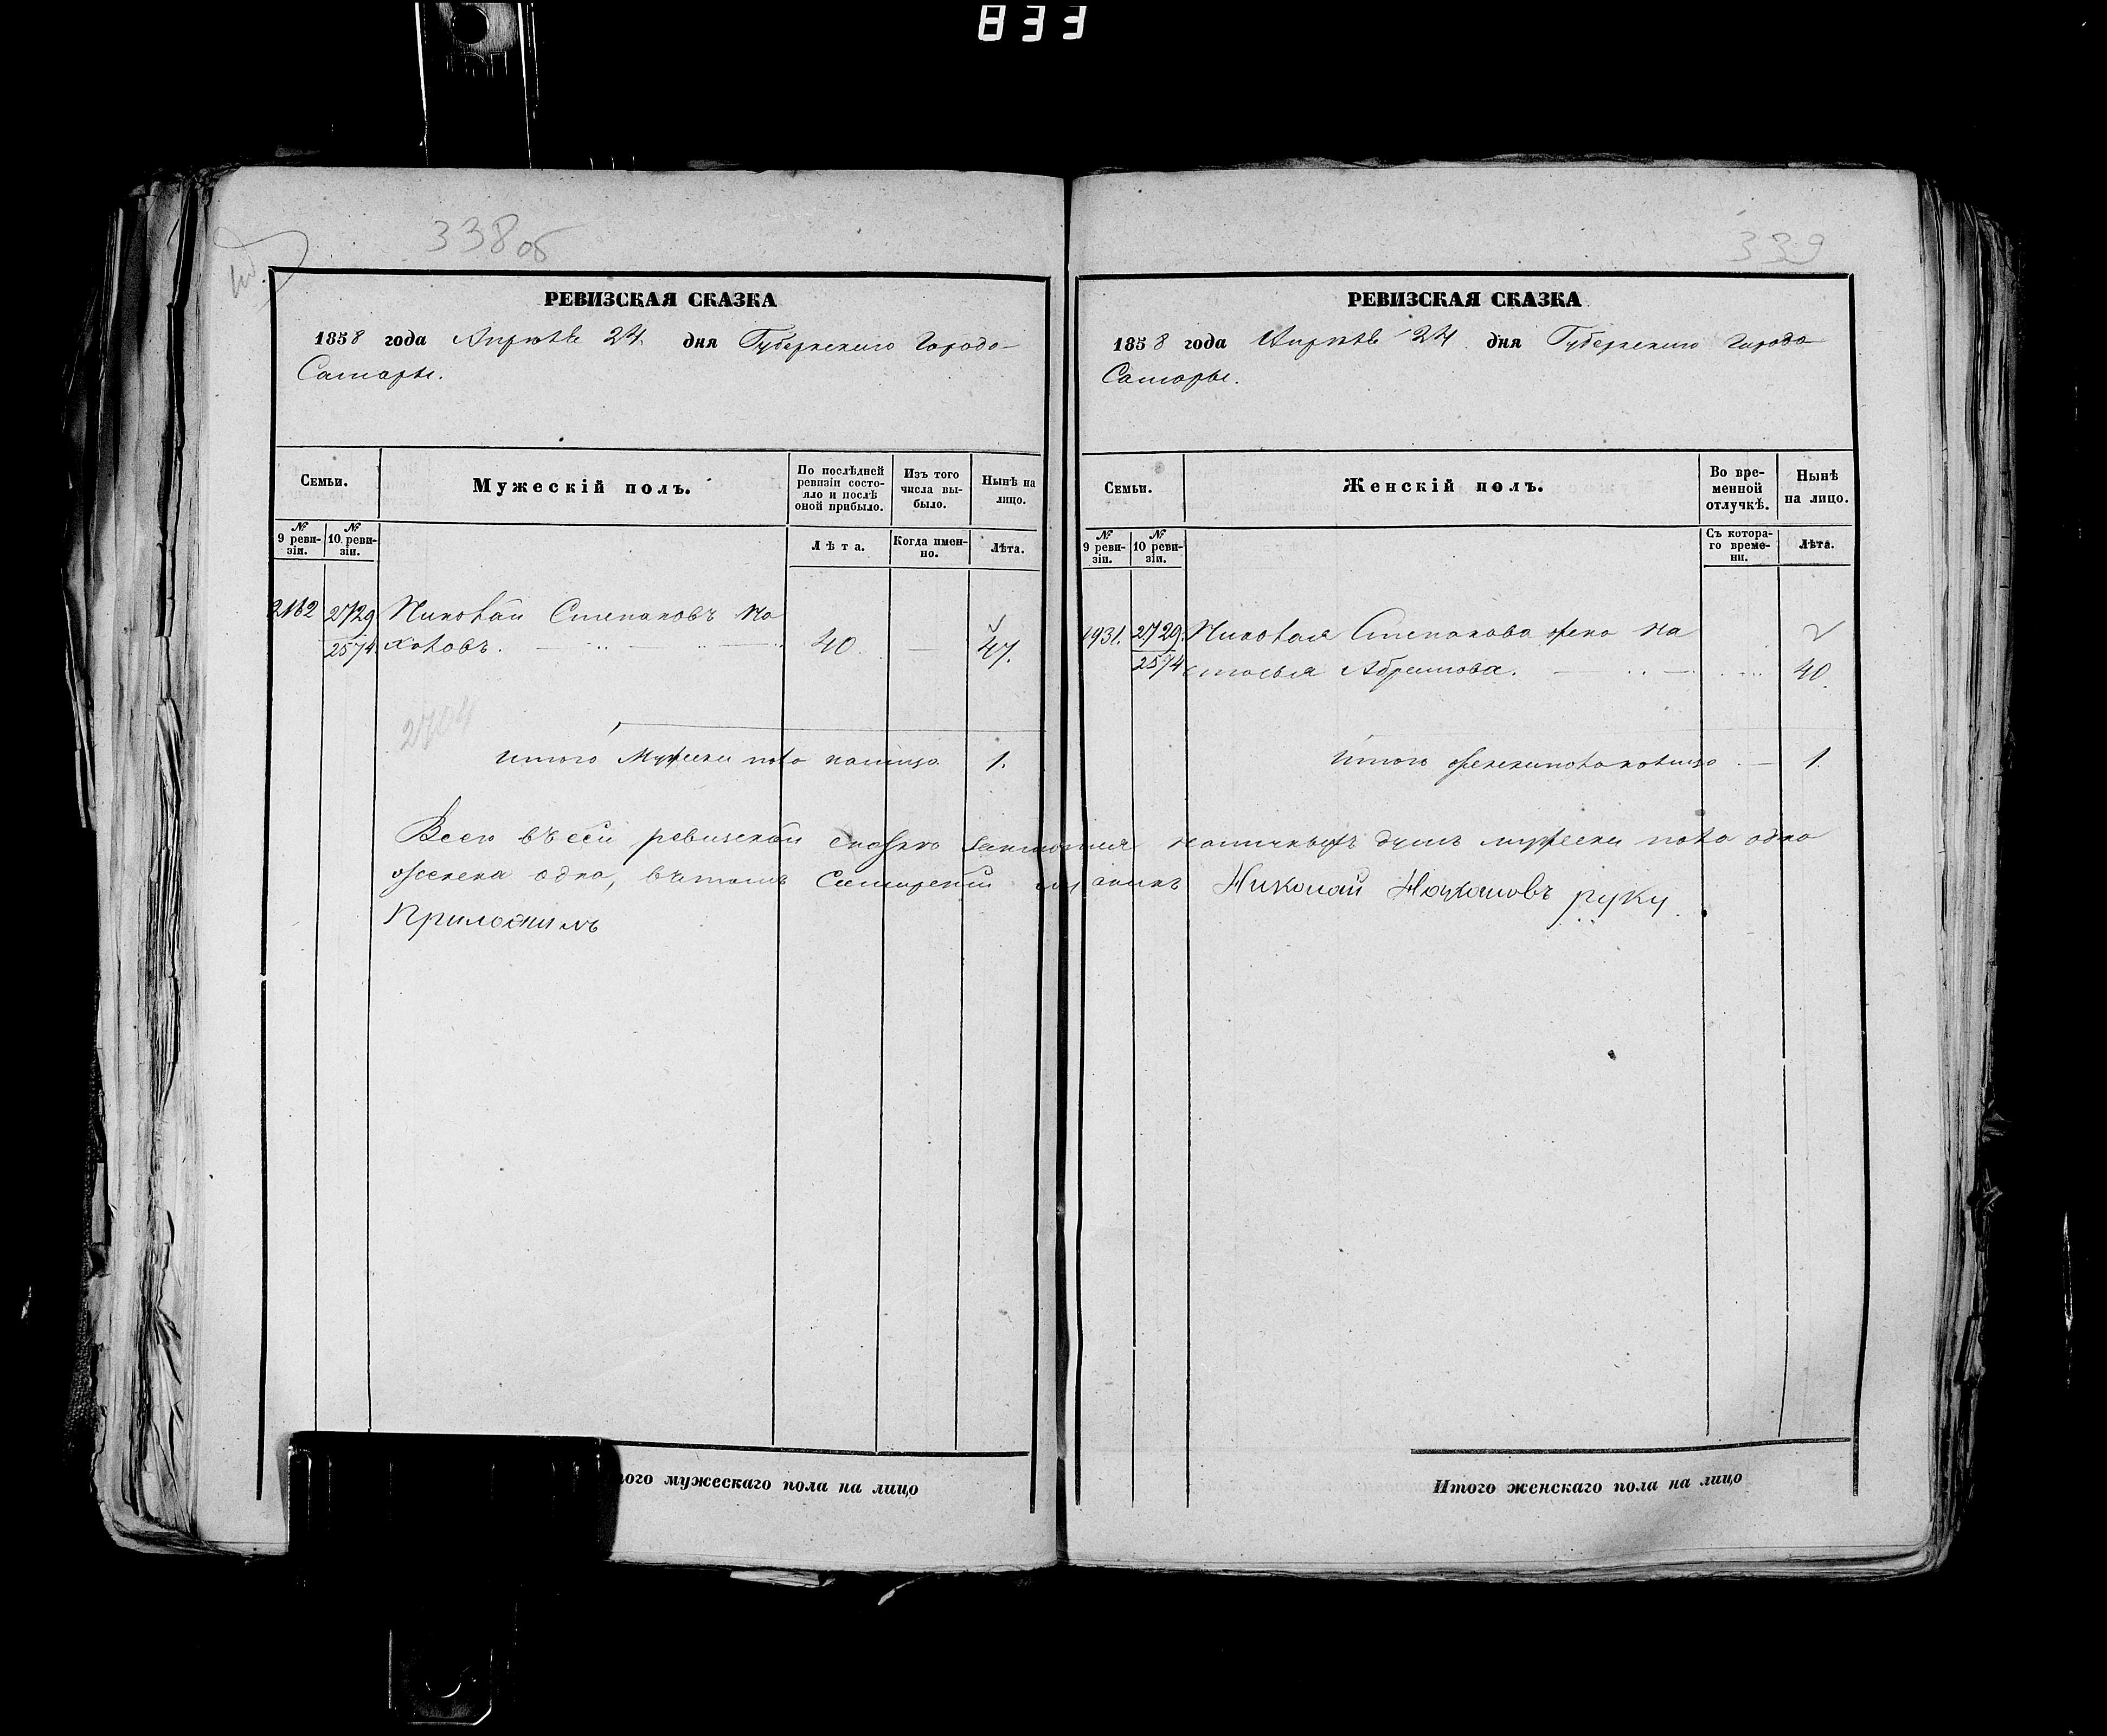 833
338об
РЕВИЗСКАЯ СКАЗКА
1858 года Апрѣля 24 дня Губернскаго Города
Самары.
Семьи.
Мужескій полъ.
По послѣдней ревизіи состояло и послѣ оной прибыло.
Изъ того числа выбыло.
Нынѣ на лицо.
№ 9 ревизіи.
№ 10 ревизіи.
Лѣта.
Когда именно.
Лѣта.
2162 2729 Николай Степановъ На
2574 халовъ. 40. — 47.
2704
Итого Мужска пола налицо 1.
Всего въ сей ревизской сказке наличныхъ душъ мужска пола одна
женска одна, въ томъ Николай руку
Приложилъ
того мужескаго пола на лицо
339
РЕВИЗСКАЯ СКАЗКА
1858 года Апрѣля 24 дня Губернскаго Города
Самары.
Семьи.
Женскій полъ.
Во временной отлучкѣ.
Нынѣ на лицо.
№ 9 ревизіи.
№ 10 ревизіи.
Съ котораго времени.
Лѣта.
1931. 2729 Николая Степанова жена На
2574 стасья 40.
Итого женска пола налицо — 1.
Итого женскаго пола на лицо